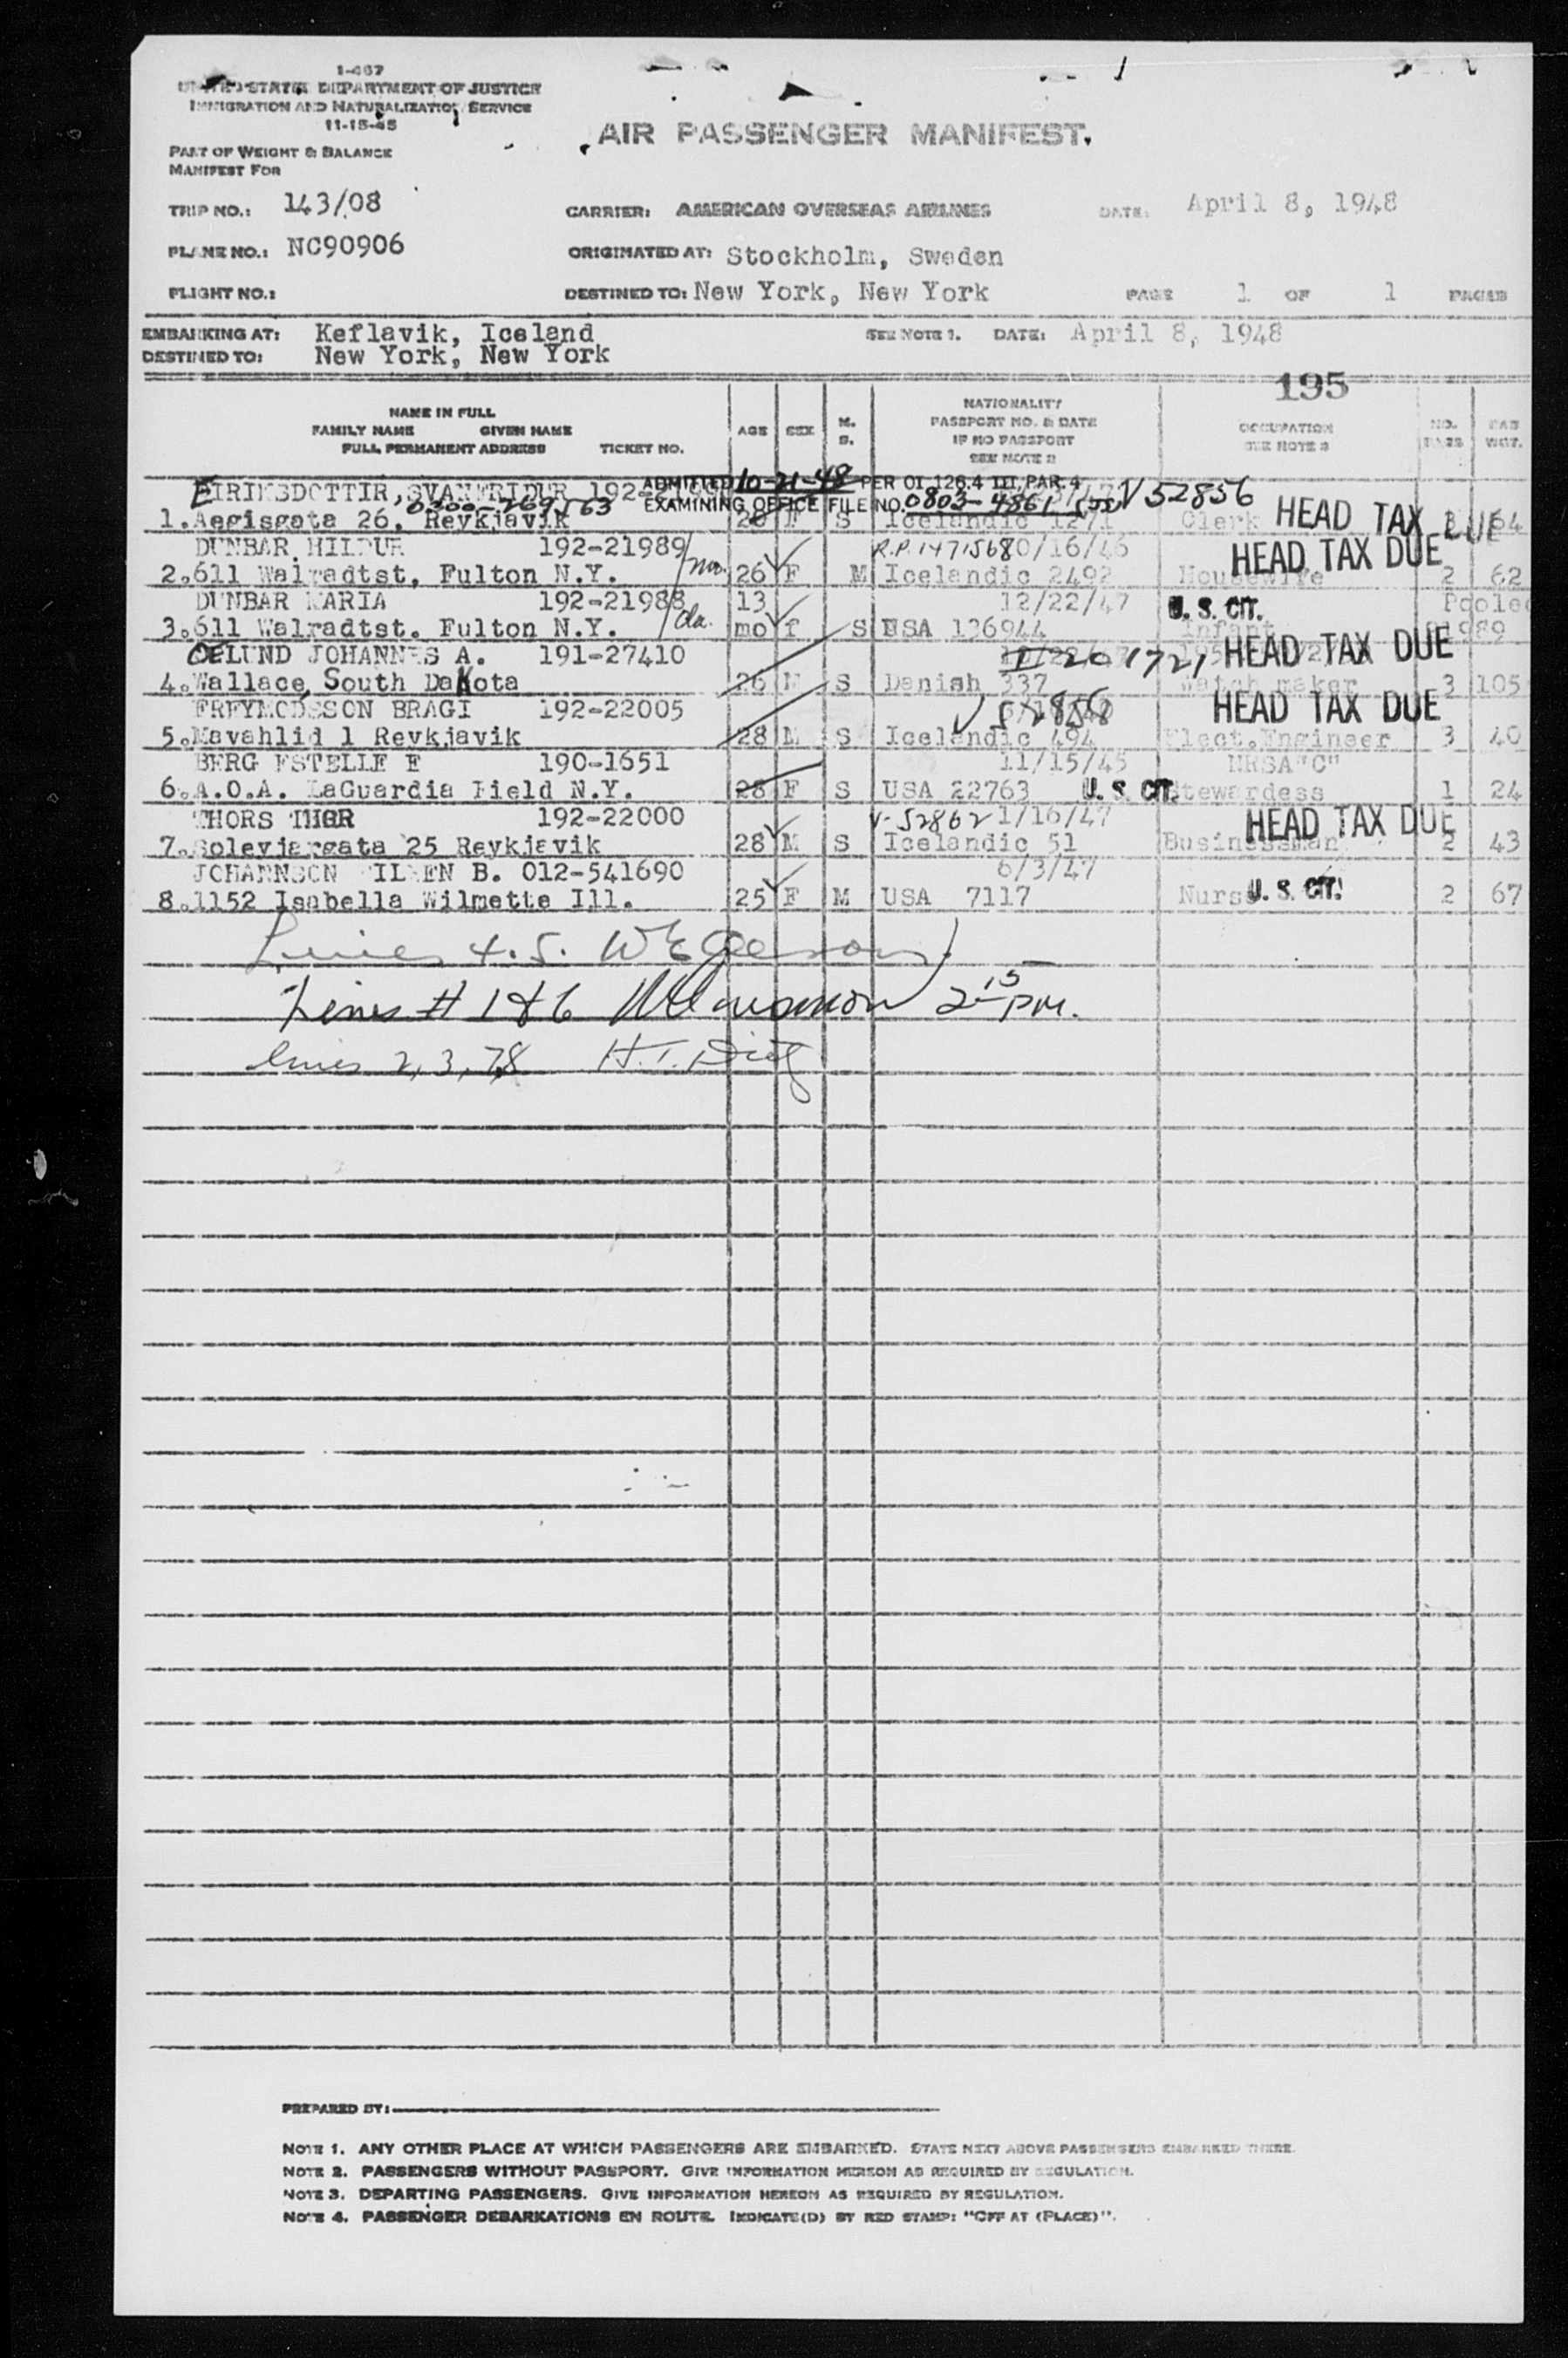 1-467
UNITED STATES DEPARTMENT OF JUSTICE
IMMIGRATION AND NATURALIZATION SERVICE
11-15-45
AIR PASSENGER MANIFEST.
PART OF WEIGHT & BALANCE
MANIFEST FOR
TRIP NO.: 143/08
CARRIER: AMERICAN OVERSEAS AIRLINES
DATE: April 8, 1948
PLANE NO.: NC90906
ORIGINATED AT: Stockholm, Sweden
FLIGHT NO.:
DESTINED TO: New York, New York
PAGE 1 OF 1 PAGES
EMBARKING AT: Keflavik, Iceland
SEE NOTE 1. DATE: April 8, 1948
DESTINED TO: New York, New York
195
NAME IN FULL
FAMILY NAME GIVEN NAME
FULL PERMANENT ADDRESS TICKET NO.
AGE SEX M. S.
NATIONALITY
PASSPORT NO. & DATE
IF NO PASSPORT
SEE NOTE 2
OCCUPATION
SEE NOTE 3
NO.
WGT.
ADMITTED 10-21-48 PER OI 126.4 III, PAR. 4
EIRIKSDOTTIR, SVANFRIDUR 192- V 52856
0300-269163 EXAMINING OFFICE FILE NO. 0803-4861
1. Aegisgata 26, Reykjavik F S Icelandic 1271 Clerk HEAD TAX DUE 64
DUNBAR HILDUR 192-21989 R.P. HEAD TAX DUE
2. 611 Walradtst, Fulton N.Y. 26 F M Icelandic 2492 Housewife 2 62
DUNBAR MARIA 192-21988 13 12/22/47 U. S. CIT. Pooled
3. 611 Walradtst. Fulton N.Y. mo f S USA 136944 Infant
OELUND JOHANNES A. 191-27410 HEAD TAX DUE
4. Wallace, South Dakota 26 M S Danish 337 Watch maker 3 105
FREYMODSSON BRAGI 192-22005 V 52858 HEAD TAX DUE
5. Mavahlid 1 Reykjavik 28 M S Icelandic 494 Elect. Engineer 3 40
BERG ESTELLE E 190-1651 11/15/45 NRSA"C"
6. A.O.A. LaGuardia Field N.Y. 28 F S USA 22763 U. S. CIT. Stewardess 1 24
THORS THOR 192-22000 V-52862 1/16/47 HEAD TAX DUE
7. Soleyjargata 25 Reykjavik 28 M S Icelandic 51 Businessman 2 43
JOHANNSON B. 012-541690 6/3/47
8. 1152 Isabella Wilmette Ill. 25 F M USA 7117 Nurse U. S. CIT. 2 67
Lines 4.5.
Lines # 1 & 6 2 15 PM.
lines 2, 3, 7, 8
PREPARED BY:
NOTE 1. ANY OTHER PLACE AT WHICH PASSENGERS ARE EMBARKED. STATE NEXT ABOVE PASSENGERS EMBARKED THERE.
NOTE 2. PASSENGERS WITHOUT PASSPORT. GIVE INFORMATION HEREON AS REQUIRED BY REGULATION.
NOTE 3. DEPARTING PASSENGERS. GIVE INFORMATION HEREON AS REQUIRED BY REGULATION.
NOTE 4. PASSENGER DEBARKATIONS EN ROUTE. INDICATE(D) BY RED STAMP: "OFF AT (PLACE)".